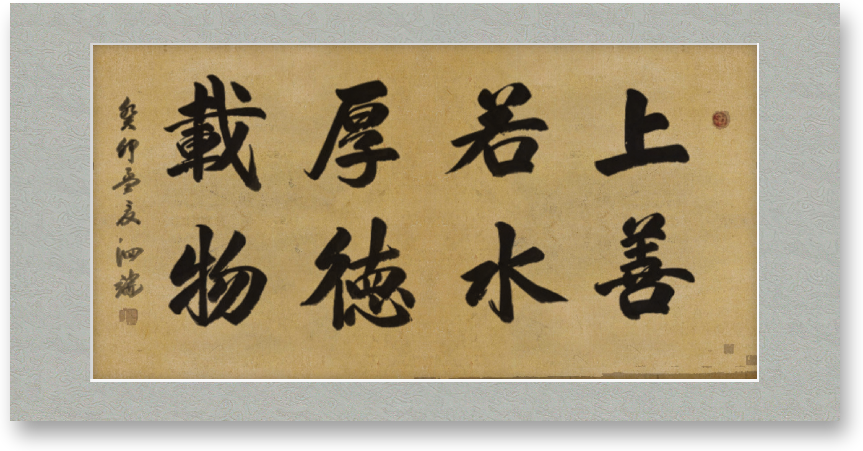 上善
若水
厚德
載物
癸卯孟夏泗瑞